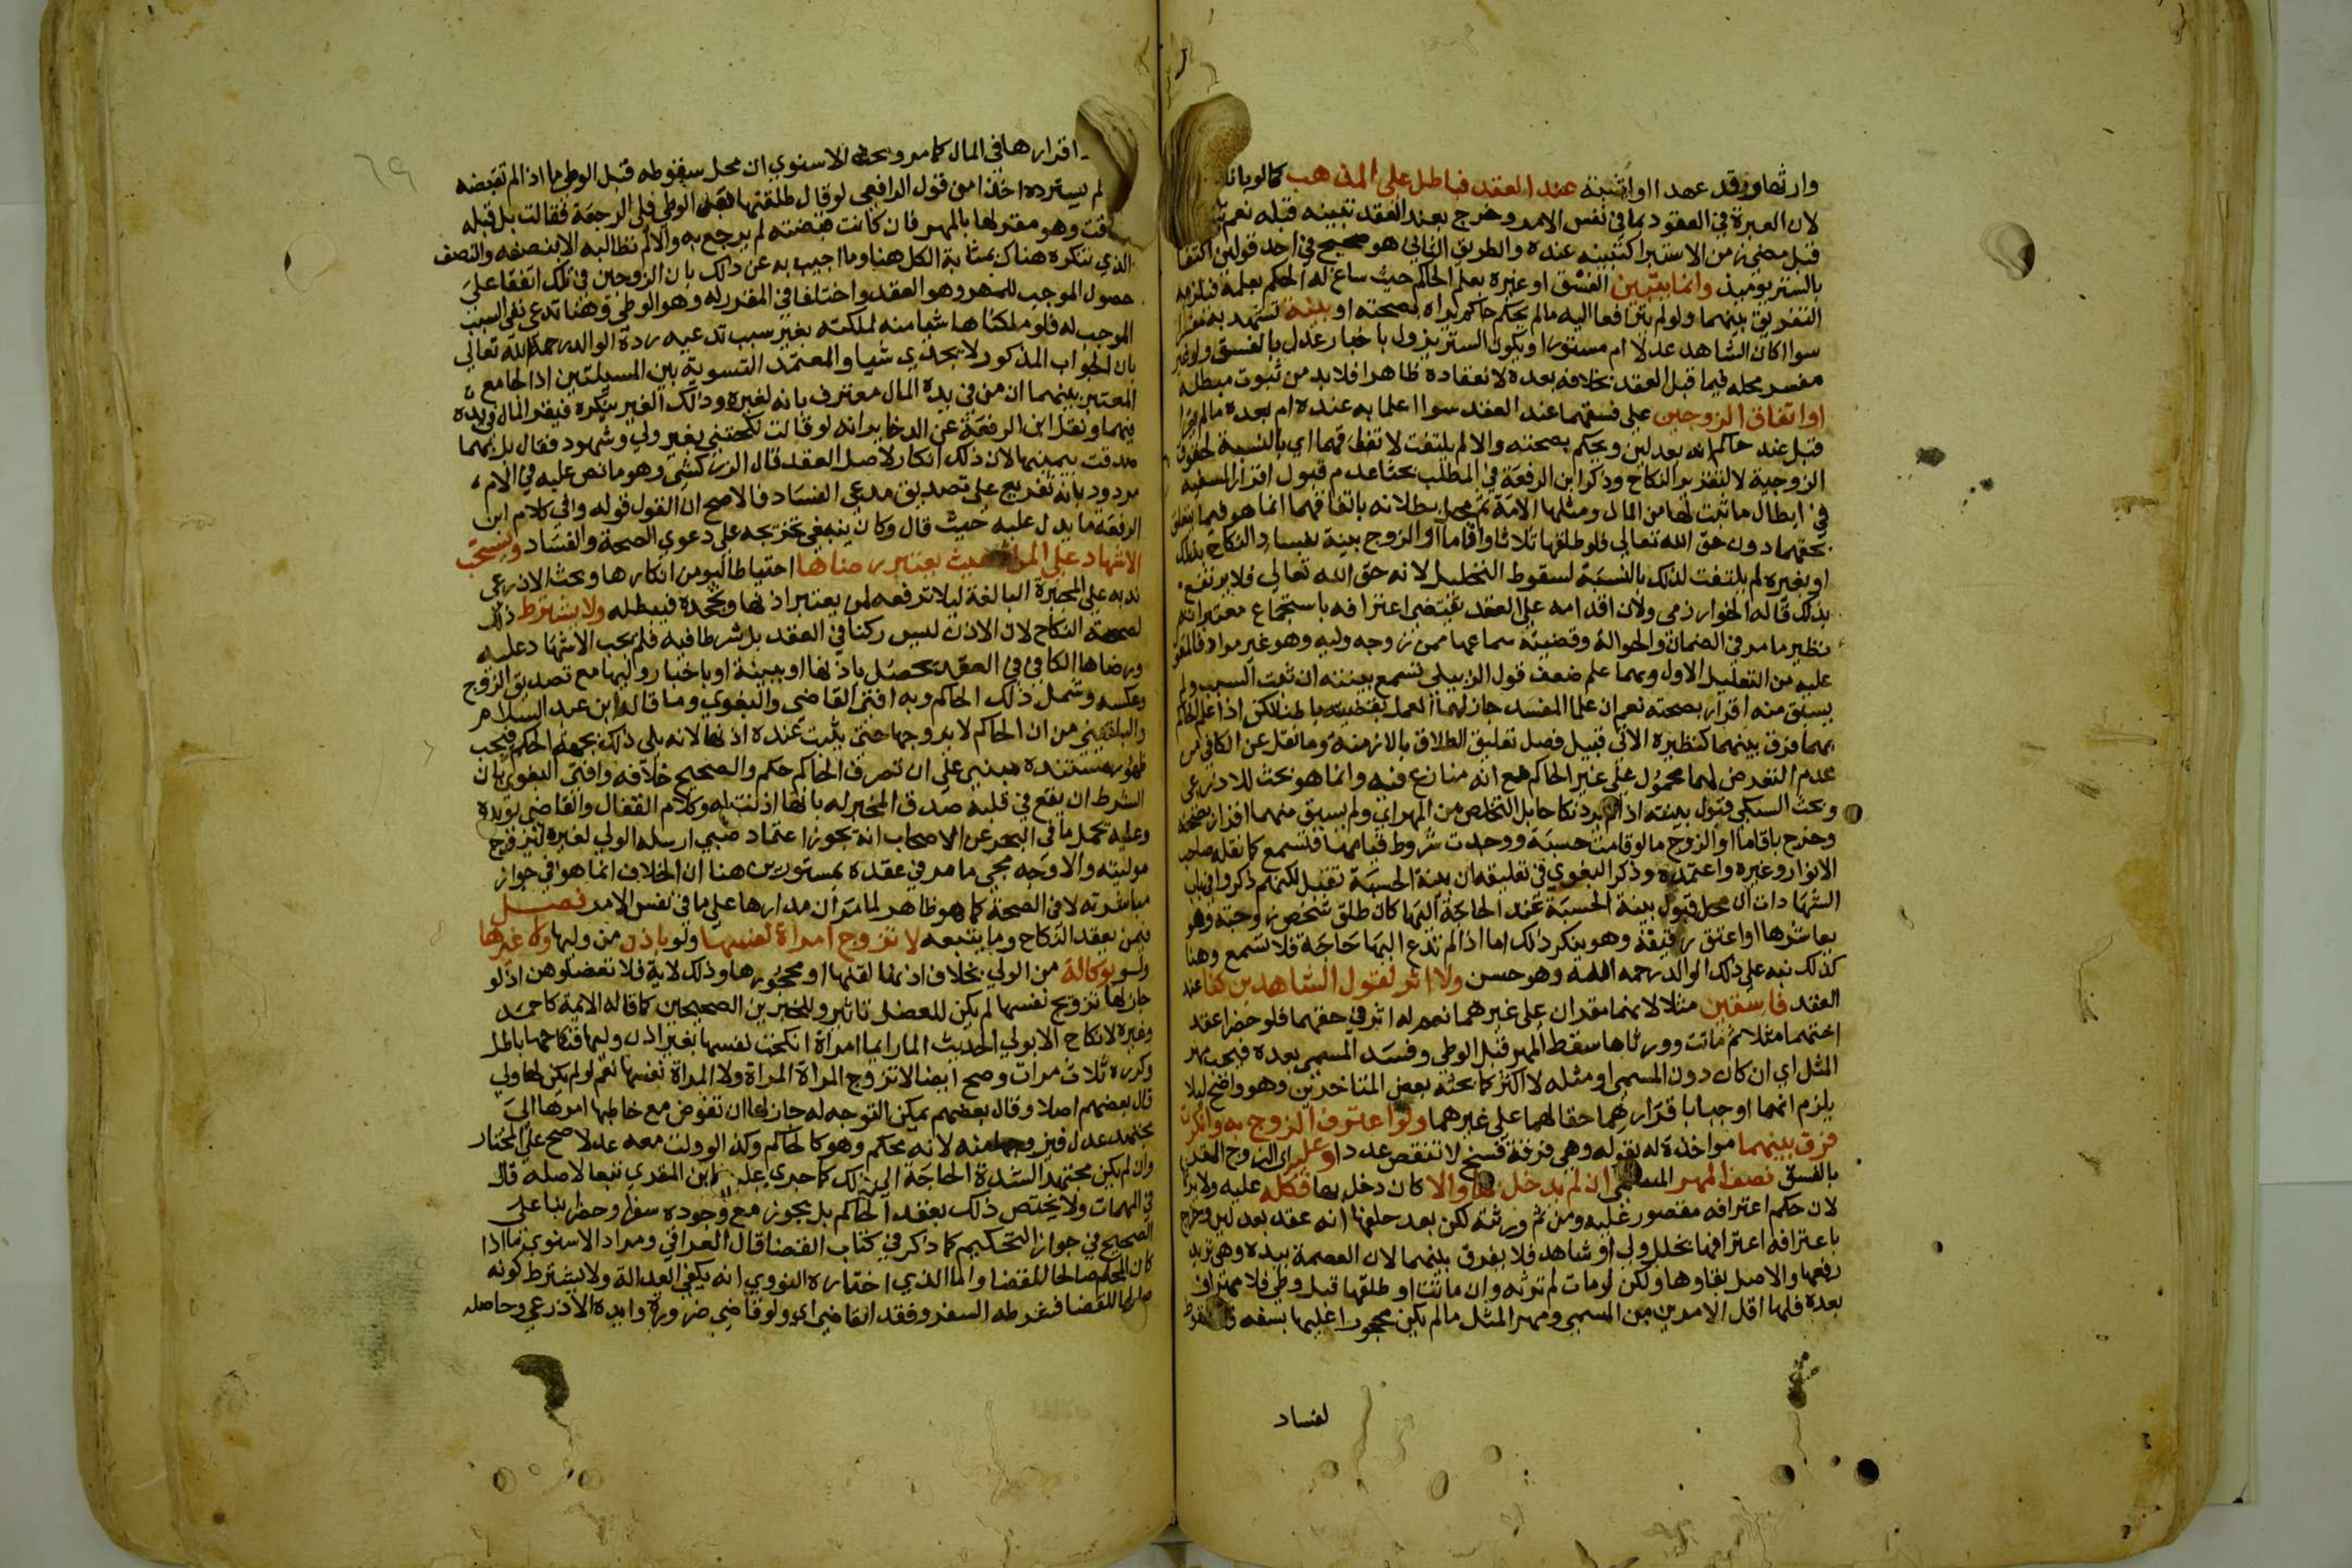 وارثها وقد عهدا او اثبتنه عند العقد فباطل على المذهب كما لو بانا
لان العبرة في العقود بما في نفس الامر وخرج بعند العقد تبينه قبله نعم
قبل مضي زمن الاستبرا كتبينه عنده والطريق الثاني هو صحيح في احد قولين اكتفا
بالستر يوميذ وانما يتبين الفسق او غيره بعلم الحاكم حيث ساغ له الحكم بعلمه فيلزمه
التفريق بينهما ولو لم يترافعا اليه ما لم يحكم حاكم يراه بصحته او بينة تشهد به مفسرا
سوا اكان الشاهد عدلا ام مستورا ويكون الستر يزول باخبار عدل بالفسق ولو غير
مفسر محله فيما قبل العقد بخلافه بعده لانعقاده ظاهرا فلا بد من ثبوت مبطله
او اتفاق الزوجين على فسقهما عند العقد سوا اعلما به عنده ام بعده ما لم يقرا
قبل عند حاكم انه بعدلين ويحكم بصحته والا لم يلتفت لاتفاقهما اي بالنسبة لحقوق
الزوجية لا لتقرير النكاح وذكر ابن الرفعة في المطلب بحثا عدم قبول اقرار السفيه
في ابطال ما ثبت لها من المال ومثلها الامة ثم محل بطلانه باتفاقهما انما هو فيما يتعلق
بحقهما دون حق الله تعالى فلو طلقها ثلاثا واقاما او الزوج بينة بفساد النكاح بذلك
او بغيره لم يلتفت لذلك بالنسبة لسقوط التحليل لانه حق الله تعالى فلا يرتفع
بذلك قاله الخوارزمي ولان اقدامه على العقد يقتضي اعترافه باستجماع معتبراته
نظير ما مر في الضمان والحوالة وقضيته سماعها ممن زوجه وليه وهو غير مراد فالمعول
عليه من التعليل الاول وبهما علم ضعف قول الزبيلي تسمع بينته ان بين السبب ولم
يسبق منه اقرار بصحته نعم ان علما المفسد جاز لهما العمل بقضيته باطنا لكن اذا علم الحاكم
بهما فرق بينهما كنظيره الاتي قبيل فصل تعليق الطلاق بالازمنة وما نقل عن الكافي من
عدم التعرض لهما محمول على غير الحاكم مع انه منازع فيه وانما هو بحث للاذرعي
وبحث السبكي قبول بينته اذا لم يرد نكاحا بل التخلص من المهر اي ولم يسبق منهما اقرار بصحته
وخرج باقاما او الزوج ما لو قامت حسبة ووجدت شروط قيامها فتسمع كما نقله صاحب
الانوار وغيره واعتمدوه وذكر البغوي في تعليقه ان بينة الحسبة تقبل لكنهم ذكروا في باب
الشهادات ان محل قبول بينة الحسبة عند الحاجة اليها كان طلق شخص زوجته وهو
يعاشرها او اعتق رقيقه وهو ينكر ذلك اما اذا لم تدع اليها حاجة فلا تسمع وهنا
كذلك نبه على ذلك الوالد رحمه الله وهو حسن ولا اثر لقول الشاهدين كنا عند
العقد فاسقين مثلا لانهما مقران على غيرهما نعم له اثر في حقهما فلو حضرا عقد
اختهما مثلا ثم ماتت وورثاها سقط المهر قبل الوطي وفسد المسمى بعده فيجب مهر
المثل اي ان كان دون المسمى او مثله لا اكثر كما بحثه بعض المتاخرين وهو واضح ليلا
يلزم انهما اوجبا باقرارهما حقا لهما على غيرهما ولو اعترف الزوج به وانكرت
فرق بينهما مواخذة له بقوله وهي فرقة فسخ لا تنقص عددا وعليه اي الزوج المقر
بالفسق نصف المهر المسمى ان لم يدخل بها والا كان دخل بها فكله عليه ولا يرثها
لان حكم اعترافه مقصور عليه ومن ثم ورثته لكن بعد حلفها انه عقد بعدلين وخرج
باعترافه اعترافها بخلل ولي او شاهد فلا يفرق بينهما لان العصمة بيده وهي تريد
رفعها والاصل بقاوها ولكن لو مات لم ترثه وان ماتت او طلقها قبل وطي فلا مهر او
بعده فلها اقل الامرين من المسمى ومهر المثل ما لم يكن محجورا عليها بسفه فلا سقوط
لفساد
اقرارها في المال كما مر وبحث الاسنوي ان محل سقوطه قبل الوطي ما اذا لم تقبضه
لم يسترده اخذا من قول الرافعي لو قال طلقتها بعد الوطي فلي الرجعة فقالت بل قبله
وهو مقر لها بالمهر فان كانت قبضته لم يرجع به والا لم تطالبه الا بنصفه والنصف
الذي تنكره هناك بمثابة الكل هنا وما اجيب به عن ذلك بان الزوجين في تلك اتفقا على
حصول الموجب للمهر وهو العقد واختلفا في المقرر له وهو الوطي وهنا تدعي نفي السبب
الموجب له فلو ملكناها شيا منه لملكته بغير سبب تدعيه رده الوالد رحمه الله تعالى
بان الجواب المذكور لا يجدي شيا والمعتمد التسوية بين المسيلتين اذ الجامع
المعتبر بينهما ان من في يده المال معترف بانه لغيره وذلك الغير ينكره فيقر المال في يده
فيهما ونقل ابن الرفعة عن الذخاير انه لو قالت نكحتني بغير ولي وشهود فقال بل بهما
صدقت بيمينها لان ذلك انكار لاصل العقد قال الزركشي وهو ما نص عليه في الام
مردود بانه تفريع على تصديق مدعي الفساد فالاصح ان القول قوله وفي كلام ابن
الرفعة ما يدل عليه حيث قال وكان ينبغي تخريجه على دعوى الصحة والفساد ويستحب
الاشهاد على المراة حيث يعتبر رضاها احتياطا ليومن انكارها وبحث الاذرعي
ندبه على المجبرة البالغة ليلا ترفعه لمن يعتبر اذنها وتجحده فيبطله ولا يشترط ذلك
لصحة النكاح لان الاذن ليس ركنا في العقد بل شرطا فيه فلم يجب الاشهاد عليه
ورضاها الكافي في العقد يحصل باذنها او ببينة او باخبار وليها مع تصديق الزوج
وعكسه وشمل ذلك الحاكم وبه افتى القاضي والبغوي وما قاله ابن عبد السلام
والبلقيني من ان الحاكم لا يزوجها حتى يثبت عنده اذنها لانه يلي ذلك بجهة الحكم فيجب
ظهور مستنده مبني على ان تصرف الحاكم حكم والصحيح خلافه وافتى البغوي بان
الشرط ان يقع في قلبه صدق المخبر له بانها اذنت له وكلام القفال والقاضي يويده
وعليه يحمل ما في البحر عن الاصحاب انه يجوز اعتماد صبي ارسله الولي لغيره ليزوج
موليته والاوجه مجي ما مر في عقده بمستورين هنا ان الخلاف انما هو في جواز
مباشرته لا في الصحة كما هو ظاهر لما مر ان مدارها على ما في نفس الامر فصل
فيمن يعقد النكاح وما يتبعه لا تزوج امراة نفسها ولو باذن من وليها ولا غيرها
ولو بوكالة من الولي بخلاف اذنها لقنها او محجورها وذلك لاية فلا تعضلوهن اذ لو
جاز لها تزويج نفسها لم يكن للعضل تاثير وللخبرين الصحيحين كما قاله الايمة كاحمد
وغيره لا نكاح الا بولي الحديث المار ايما امراة انكحت نفسها بغير اذن وليها فنكاحها باطل
وكرره ثلاث مرات وصح ايضا لا تزوج المراة المراة ولا المراة نفسها نعم لو لم يكن لها ولي
قال بعضهم اصلا وقال بعضهم يمكن التوجه له جاز لها ان تفوض مع خاطبها امرها الى
مجتهد عدل فيزوجها منه لانه محكم وهو كالحاكم وكذا لو ولت معه عدلا صح على المختار
وان لم يكن مجتهدا لشدة الحاجة الى ذلك كما جرى عليه ابن المقري تبعا لاصله قال
في المهمات ولا يختص ذلك بفقد الحاكم بل يجوز مع وجوده سفرا وحضرا بنا على
الصحيح في جواز التحكيم كما ذكر في كتاب القضا قال العراقي ومراد الاسنوي ما اذا
كان المحكم صالحا للقضا واما الذي اختاره النووي انه يكفي العدالة ولا يشترط كونه
صالحا للقضا فشرطه السفر وفقد القاضي اي ولو قاضي ضرورة وايده الاذرعي وحاصله